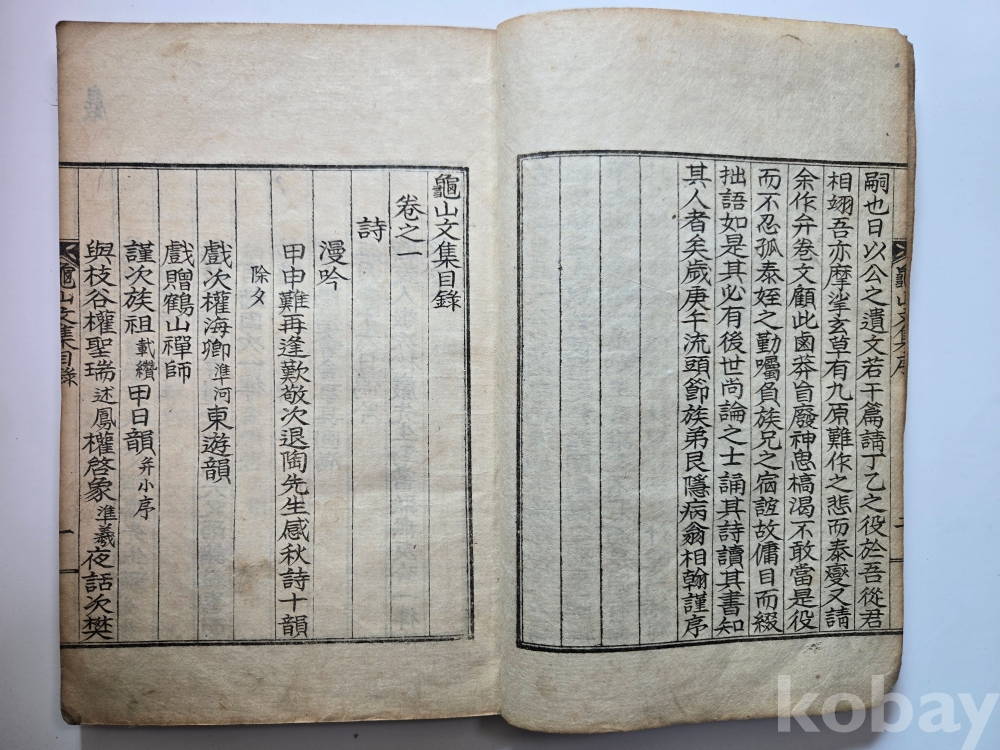 嗣也日以公之遺文若干篇請丁乙之役於吾從君
相翊吾亦摩挲玄草有九原難作之悲而泰燮又請
余作弁卷文顧此鹵莽旨廢神思槁渴不敢當是役
而不忍孤泰姪之勤囑負族兄之宿誼故傭目而綴
拙語如是其必有後世尚論之士誦其詩讀其書知
其人者矣歲庚午流頭節族弟艮隱病翁相翰謹序
龜山文集序
龜山文集目錄
卷之一
詩
漫吟
甲申難再逢歎敬次退陶先生感秋詩十韻
除夕
戲次權海卿準河東遊韻
戲贈鶴山禪師
謹次族祖載纘甲日韻并小序
與枝谷權聖瑞述鳳權啓象準羲夜話次樊
龜山文集目錄
一
kobay